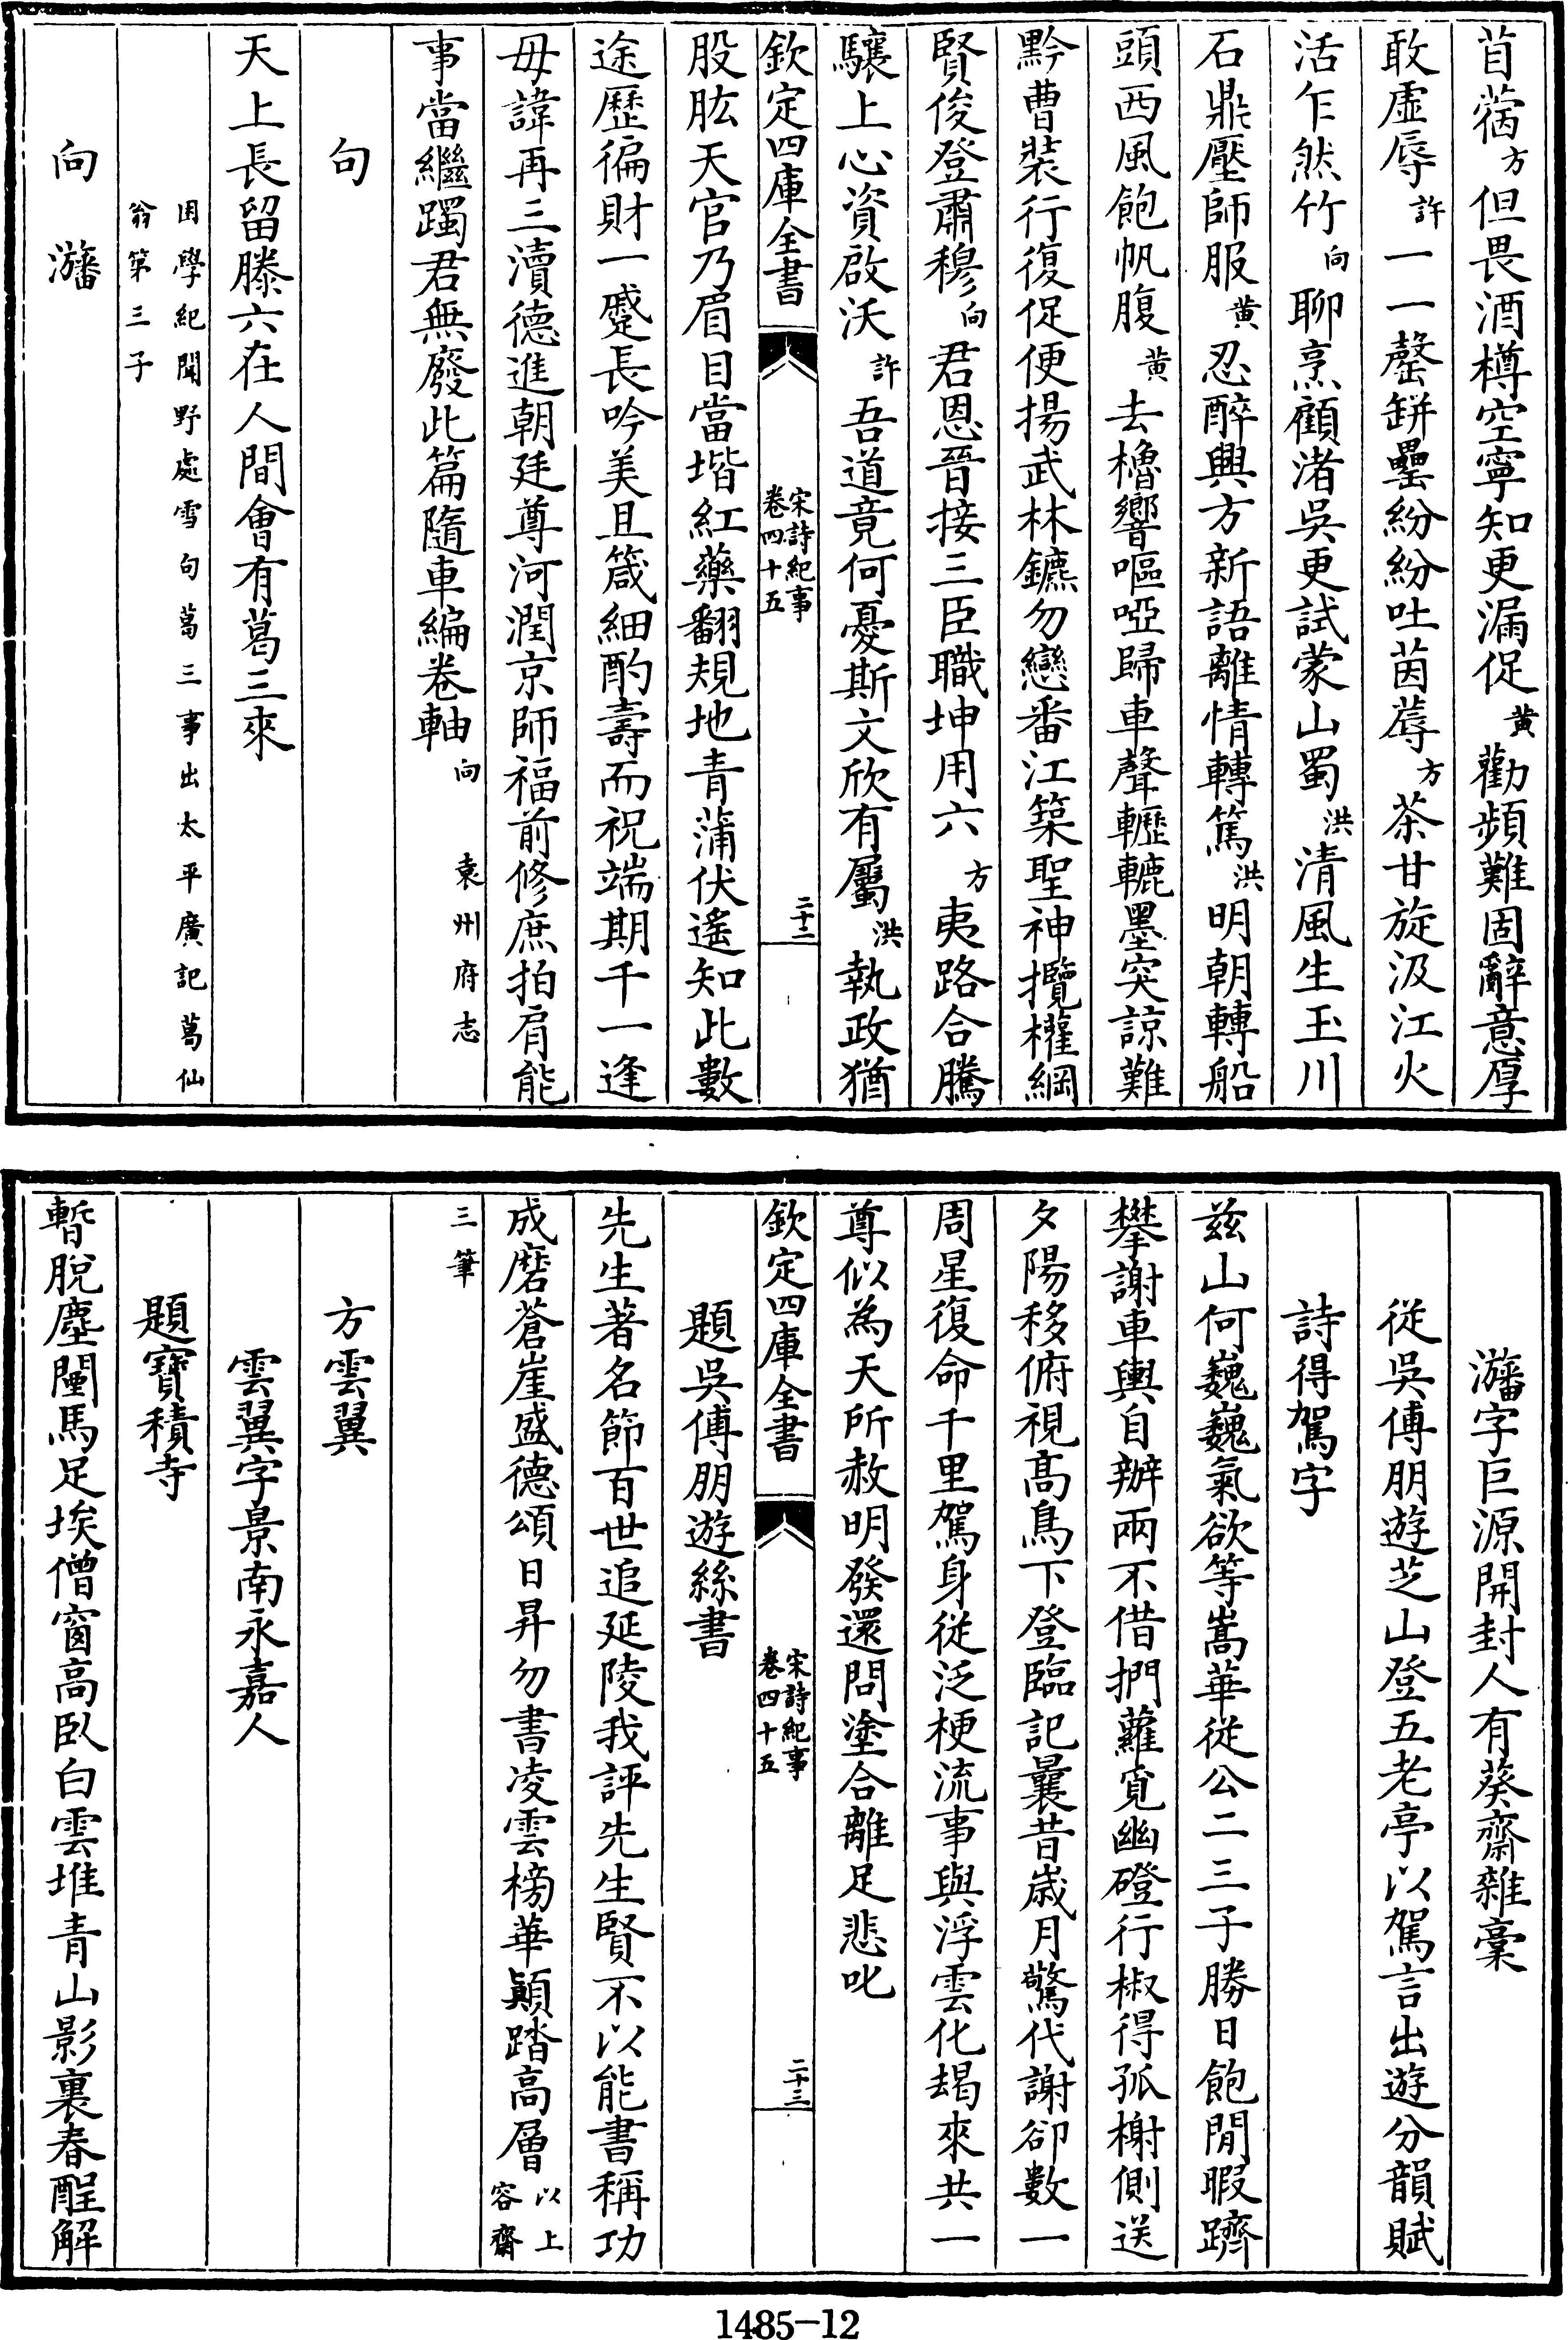 苜藊方但畏酒樽空寧知更漏促黄勸頻難固辭意厚
敢虛辱許一一罄缾罍紛紛吐茵蓐方茶甘旋汲江火
活乍然竹向聊烹顧渚吳更試蒙山蜀洪清風生玉川
石鼎壓師服黄忍醉興方新語離情轉篤洪明朝轉船
頭西風飽帆腹黄去櫓響嘔啞歸車聲轣轆墨突諒難
黔曹裝行復促便揚武林鑣勿戀番江築聖神攬權綱
賢俊登肅穆向君恩晉接三臣職坤用六方夷路合騰
驤上心資啟沃許吾道竟何憂斯文欣有屬洪執政猶
欽定四庫全書
宋詩紀事
卷四十五
二十二
股肱天官乃眉目當堦紅藥翻規地青蒲伏遙知此數
途歷徧財一蹙長吟美且箴細酌壽而祝端期千一逢
毋諱再三瀆德進朝廷尊河潤京師福前修庶拍肩能
事當繼躅君無廢此篇隨車編卷軸向　袁州府志
句
天上長留滕六在人間會有葛三來
困學紀聞野處雪句葛三事出太平廣記葛仙
翁第三子
向　㵗
㵗字巨源開封人有葵齋雜稾
從吳傅朋遊芝山登五老亭以駕言出遊分韻賦
詩得駕字
兹山何巍巍氣欲等嵩華從公二三子勝日飽閒暇躋
攀謝車輿自辦兩不借捫蘿覓幽磴行椒得孤榭側送
夕陽移俯視高鳥下登臨記曩昔歲月驚代謝卻數一
周星復命千里駕身從泛梗流事與浮雲化朅來共一
尊似為天所赦明發還問塗合離足悲叱
欽定四庫全書
宋詩紀事
卷四十五
二十三
題吳傅朋遊絲書
先生著名節百世追延陵我評先生賢不以能書稱功
成磨蒼崖盛德頌日昇勿書凌雲榜華顛踏高層以上
容齋
三筆
方雲翼
雲翼字景南永嘉人
題寶積寺
暫脫塵闉馬足埃僧窗高臥白雲堆青山影裏春酲解
1485-12